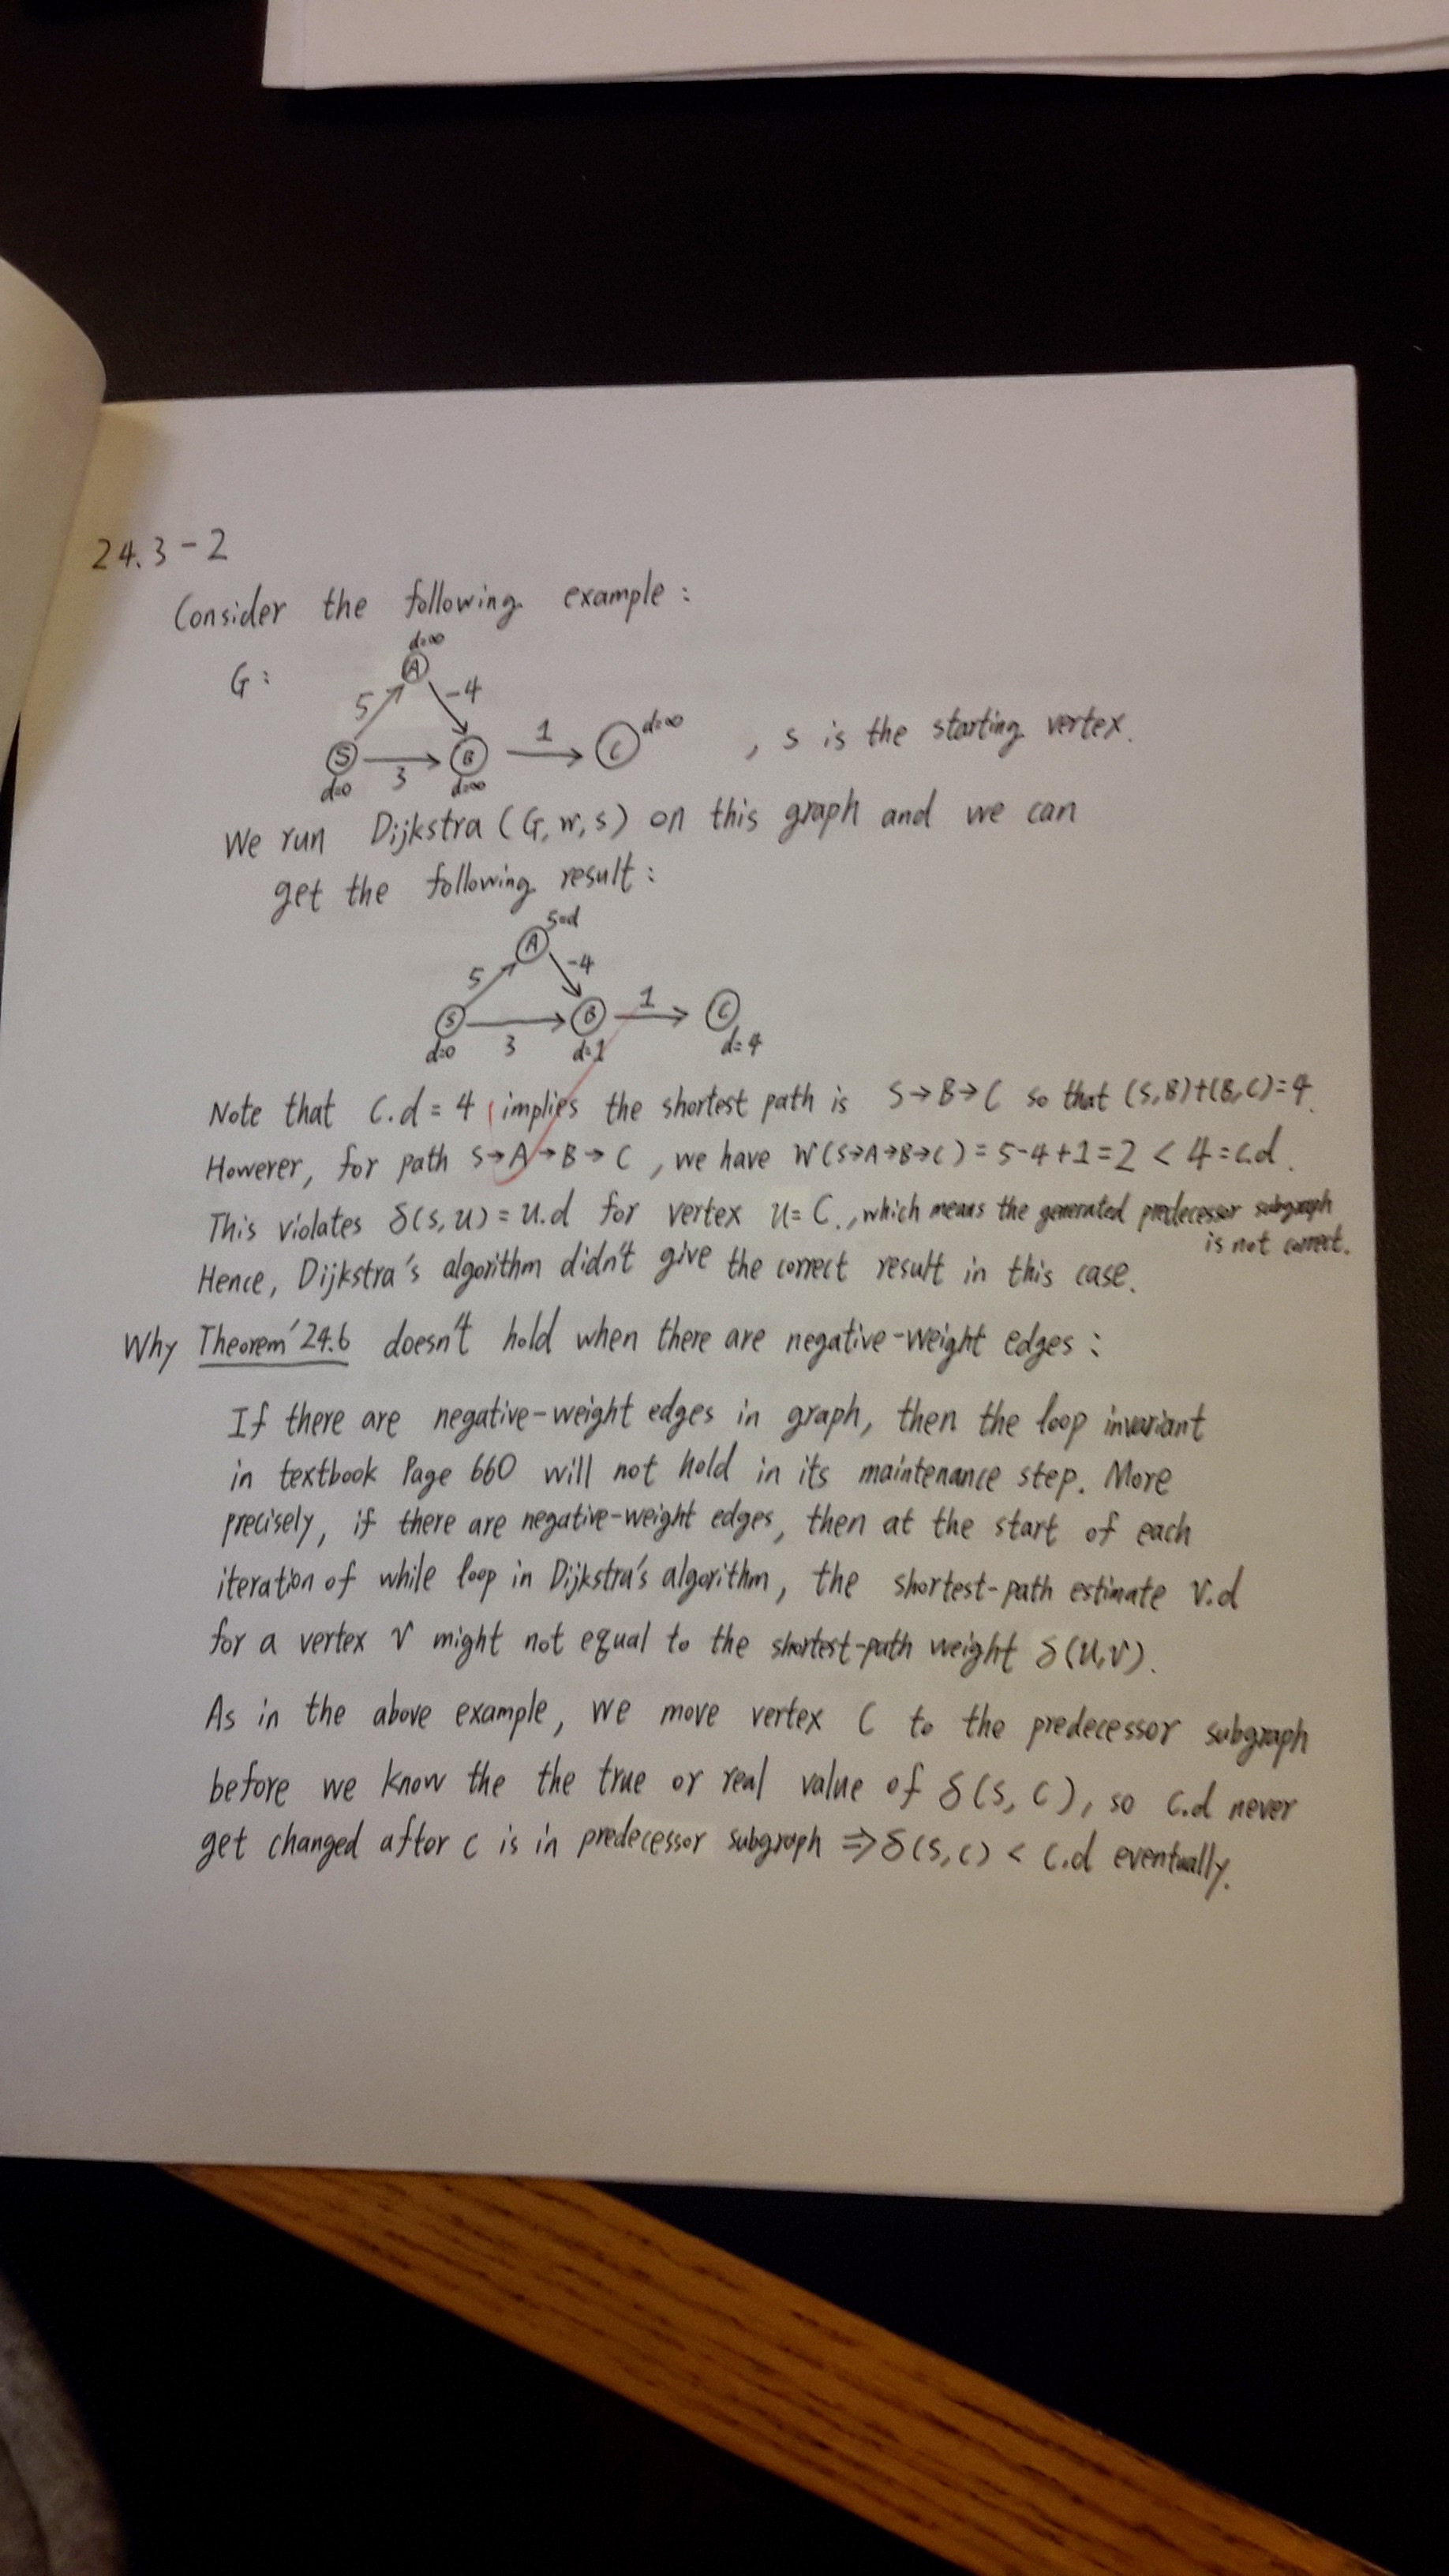 24.3-2
Consider the following example:
d=∞
G:
A
5
-4
S
3
B
1
C
d=∞
, s is the starting vertex.
d=0
d=∞
We run Dijkstra (G, w, s) on this graph and we can
get the following result:
5=d
A
5
-4
S
3
B
1
C
d=0
d=1
d=4
Note that C.d = 4 implies the shortest path is S→B→C so that (S,B)+(B,C)=4.
However, for path S→A→B→C, we have W(S→A→B→C) = 5-4+1=2 < 4 = C.d.
This violates δ(s,u) = u.d for vertex u = C., which means the generated predecessor subgraph
is not correct.
Hence, Dijkstra's algorithm didn't give the correct result in this case.
Why Theorem 24.6 doesn't hold when there are negative-weight edges:
If there are negative-weight edges in graph, then the loop invariant
in textbook Page 660 will not hold in its maintenance step. More
precisely, if there are negative-weight edges, then at the start of each
iteration of while loop in Dijkstra's algorithm, the shortest-path estimate v.d
for a vertex v might not equal to the shortest-path weight δ(u,v).
As in the above example, we move vertex C to the predecessor subgraph
before we know the the true or real value of δ(s, C), so C.d never
get changed after C is in predecessor subgraph ⇒ δ(s,c) < C.d eventually.